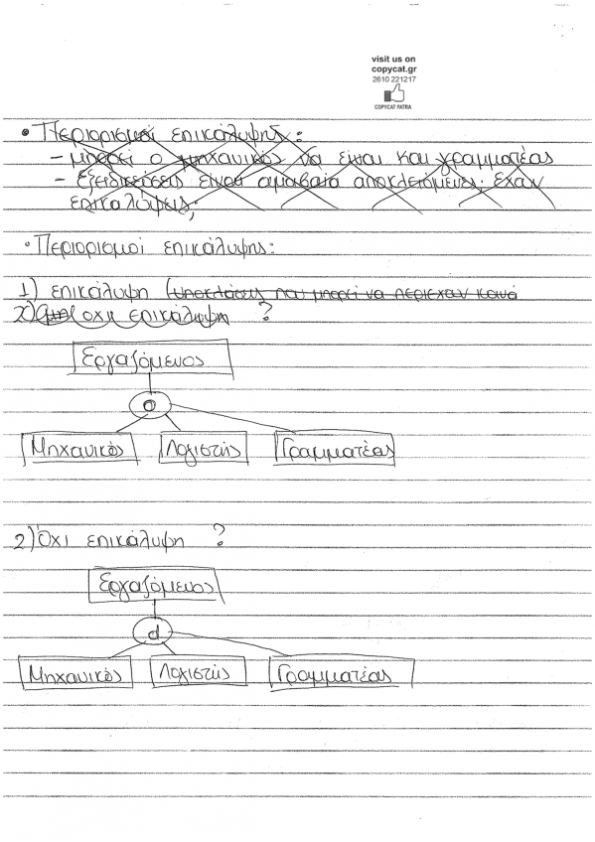 visit us on
copycat.gr
2610 221217
COPYCAT PATRA
• Περιορισμοί επικάλυψης:
– μπορεί ο μηχανικός να είναι και γραμματέας
– Εξειδικεύσεις είναι αμοιβαία αποκλειόμενες; έχουν
επικαλύψεις;
• Περιορισμοί επικάλυψης:
1) επικάλυψη (υποκλάσεις που μπορεί να περιέχουν κοινά
2) όχι επικάλυψη ?
Εργαζόμενος
o
Μηχανικός Λογιστής Γραμματέας
2) Όχι επικάλυψη ?
Εργαζόμενος
d
Μηχανικός Λογιστής Γραμματέας